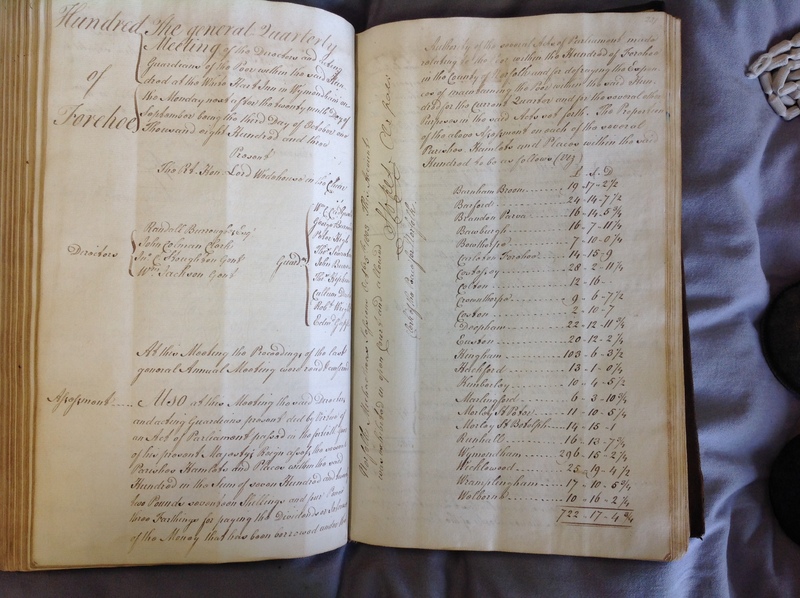 Hundred
of
Forehoe
The general Quarterly
Meeting of the Directors and acting
Guardians of the Poor within the said Hun
dred at the White Hart Inn in Wymondham on
the Monday next after the twenty ninth Day of
September being the third Day of October one
Thousand eight Hundred and three
Present
The Rt. Hon. Lord Wodehouse in the Chair
Directors
Randall Burroughes Esqr
John Colman Clark
Jn. C. Houghton Gent
Wm Jackson Gent
Guardns
Peter High
Thos
John
Thos
Robt
Edmd
At this Meeting the Proceedings of the last
general Annual Meeting were read & confirmed
Assessment
Also at this Meeting the said Directors
and acting Guardians present did by Virtue of
an Act of Parliament passed in the
of his present Majestys Reign assess the several
Parishes Hamlets and Places within the said
Hundred in the Sum of seven Hundred and twenty
two Pounds seventeen Shillings and four Pence
three Farthings for paying the Dividends or Interest
of the Money that has been borrowed under the
Authority of the several Acts of Parliament made
relating to the Poor within the Hundred of Forehoe
in the County of Norfolk and for defraying the Expen
ces of maintaining the Poor within the said Hun
dred for the Current Quarter and for the several other
Purposes in the said Acts set forth. The Proportion
of the above Assessment on each of the several
Parishes Hamlets and Places within the said
Hundred to be as follows (Viz)
£ S D
Barnham Broom 19 - 17 - 2½
Barford 24 - 14 - 7½
Brandon Parva 16 - 14 - 5¾
Bawburgh 16 - 7 - 11¼
Bowthorpe 7 - 10 - 0¼
Carleton Forehoe 14 - 15 - 9
Costessey 28 - 2 - 11¼
Colton 12 - 16 -
Crownthorpe 9 - 6 - 7½
Coston 2 - 10 - 7
Deepham 22 - 12 - 11¾
Easton 20 - 12 - 2¼
Hingham 103 - 6 - 3½
Hackford 13 - 1 - 0¼
Kimberley 10 - 4 - 5½
Marlingford 6 - 3 - 10¾
Morley St Peter 11 - 10 - 5¼
Morley St Botolph 14 - 15 - 1
Runhall 16 - 13 - 7¾
Wymondham 296 - 15 - 2¼
Wicklewood 25 - 19 - 4½
Wramplingham 17 - 10 - 5¾
Welborne 10 - 16 - 2¼
722 - 17 - 4¾